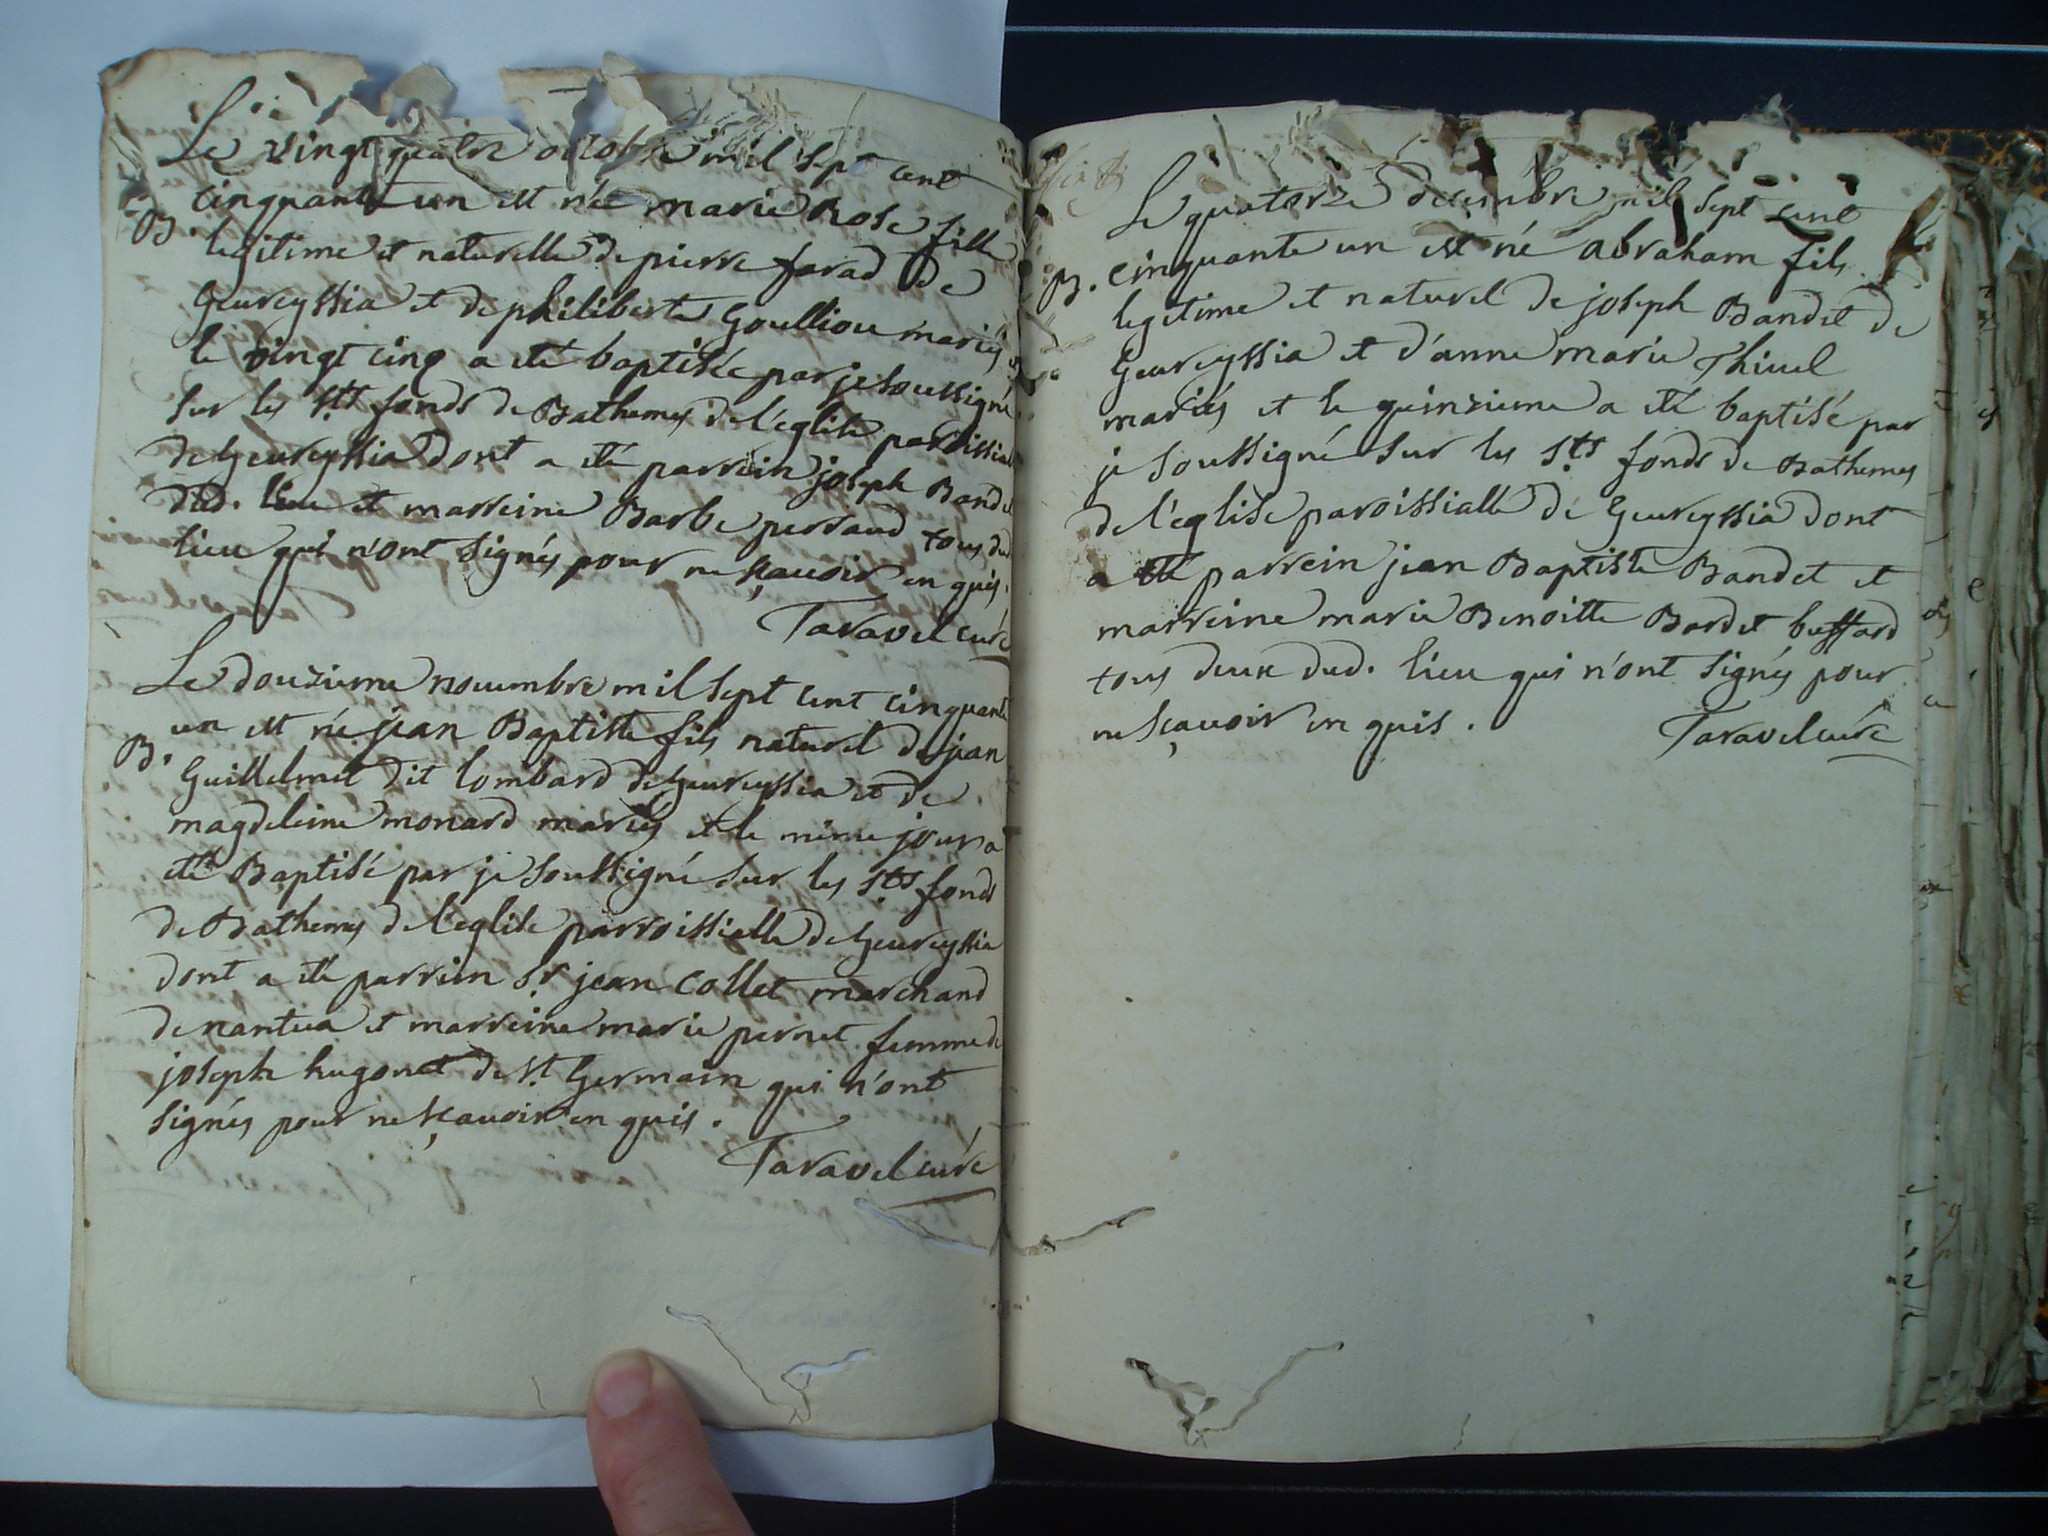 Le vingt quatre octobre mil sept cent
cinquante un est née marie Rose fille
B. legitime et naturelle de pierre farad de
Geureyssia et de philiberte Goulliou mariés
le vingt cinq a eté baptisée par je soussigné
sur les sts fonds de Bathemes de l'eglise paroissialle
de Geureyssia dont a eté parrein joseph Bandet
dud. lieu et marreine Barbe perraud tous dud
lieu qui n'ont signés pour ne sçauoir en quis.
Taravel curé
Le douzieme nouembre mil sept cent cinquante
un est né jean Baptiste fils naturel de jean
B. Guillelmet dit lombard de Geureyssia et de
magdeleine monard mariés et le méme jour a
eté Baptisé par je soussigné sur les sts fonds
de Bathemes de l'eglise parroissialle de Geureyssia
dont a eté parrien sr jean Collet marchand
de nantua et marreine marie pernet femme de
joseph hugonet de st Germain qui n'ont
signés pour ne sçauoir en quis.
Taravel curé
Le quatorze decembre mil sept cent
B. cinquante un est né abraham fils
legitime et naturel de joseph Bandet de
Geureyssia et d'anne marie Thiuel
mariés et le quinzieme a eté baptisé par
je soussigné sur les sts fonds de Bathemes
de l'eglise paroissialle de Geureyssia dont
a eté parrein jean Baptiste Bandet et
marreine marie Benoitte Bardet buffard
tous deux dud. lieu qui n'ont signés pour
ne sçauoir en quis.
Taravel curé